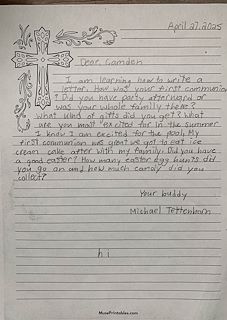 April 27, 2025
Dear, Camden
I am learning how to write a
letter. How was your first communion
? Did you have party afterward or
was your whole family there?
What kind of gifts did you get? What
are you most excited for in the summer
I know I am excited for the pool. My
first communion was great we got to eat ice
cream cake after with my family. Did you have
a good easter? How many easter egg hunts did
you go on and how much candy did you
collect?
Your buddy
Michael Tettenborn
hi
MusePrintables.com